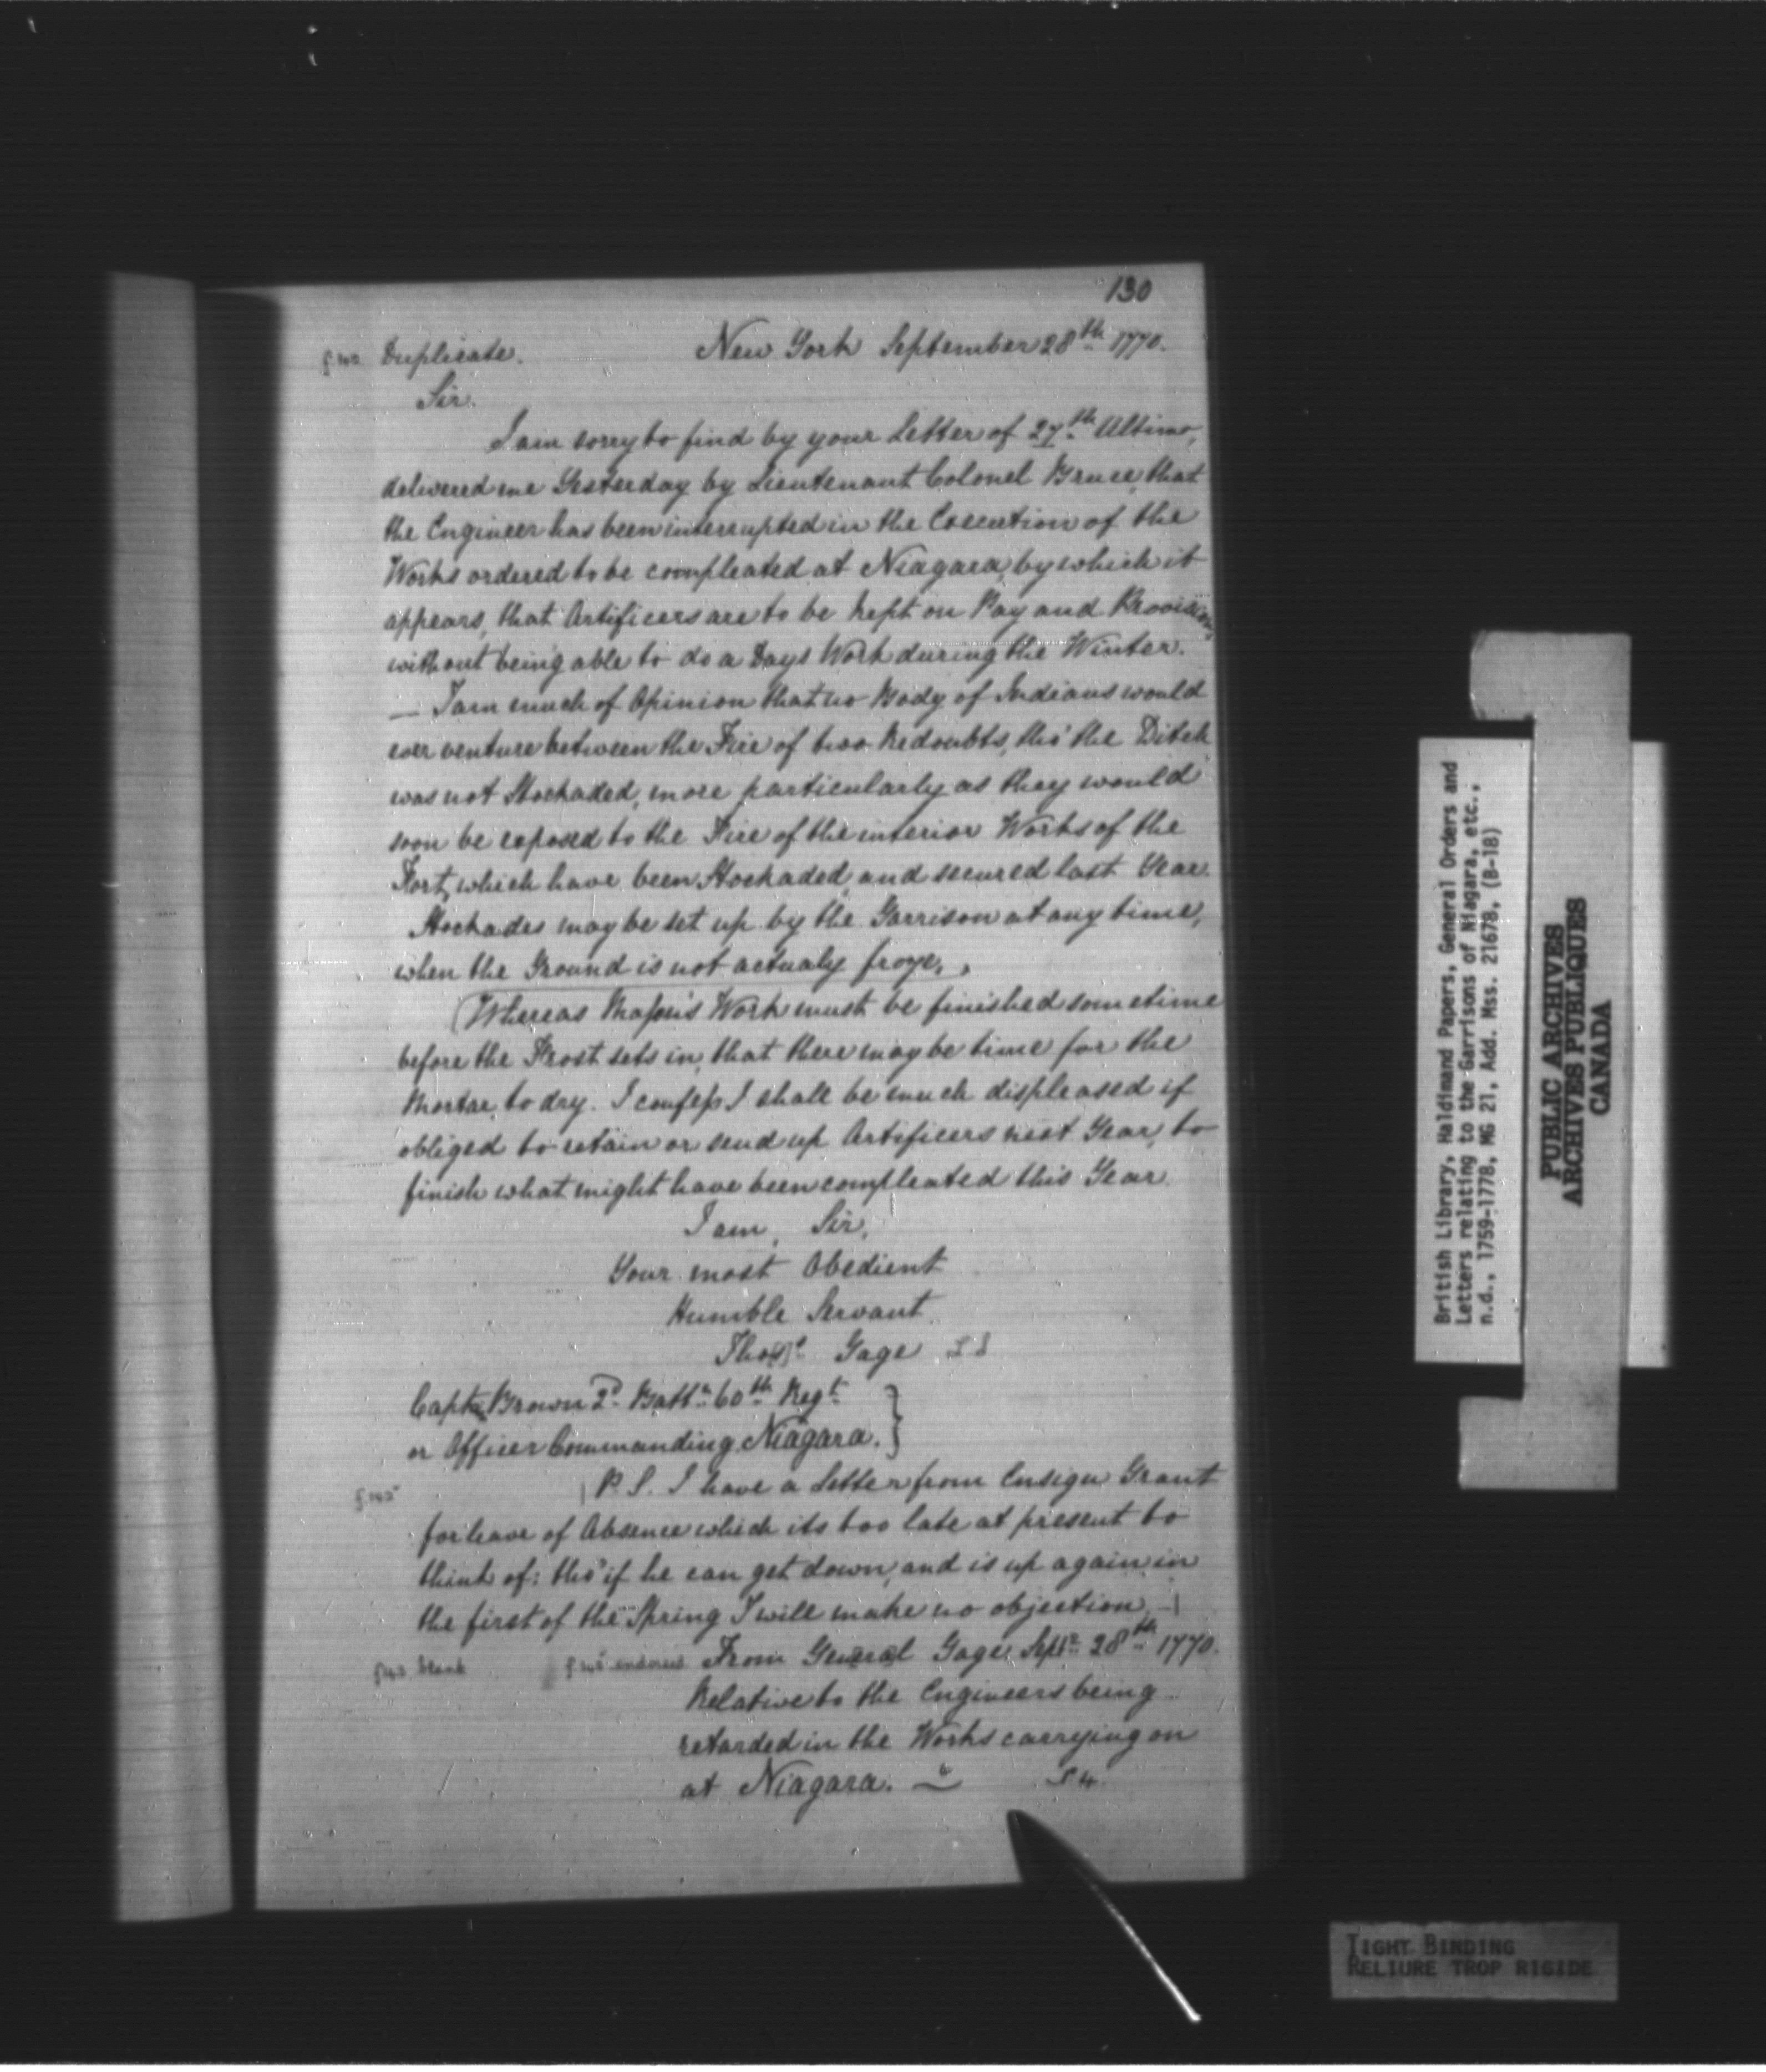 130
Duplicate. New York September 28th 1770.
Sir.
I am sorry to find by your Letter of 27th Ultimo,
delivered me Yesterday by Lieutenant Colonel Bruce, that
the Engineer has been interrupted in the Execution of the
Works ordered to be compleated at Niagara, by which it
appears, that Artificers are to be kept on Pay and Provisions,
without being able to do a Days Work during the Winter.
— I am much of Opinion that no Body of Indians would
ever venture between the Fire of two Redoubts, tho' the Ditch
was not Stockaded, more particularly as they would
soon be exposed to the Fire of the interior Works of the
Fort, which have been Stockaded and secured last Year.
Stockades may be set up by the Garrison at any time,
when the Ground is not actualy froze,
Whereas Mason's Work must be finished sometime
before the Frost sets in, that there may be time for the
Mortar to dry. I confess I shall be much displeased if
obliged to retain or send up Artificers next Year, to
finish what might have been compleated this Year.
I am, Sir,
Your most Obedient
Humble Servant
Thos. Gage
Captn Brown 2d Battn 60th Regt
or Officer Commanding Niagara. }
P.S. I have a Letter from Ensign Grant
for leave of Absence which its too late at present to
think of: tho' if he can get down, and is up again in
the first of the Spring I will make no objection
blank endorsed From General Gage Septr 28th 1770.
Relative to the Engineers being
retarded in the Works carrying on
at Niagara.
British Library, Haldimand Papers, General Orders and
Letters relating to the Garrisons of Niagara, etc.,
n.d., 1759-1778, MG 21, Add. Mss. 21678, (B-18)
PUBLIC ARCHIVES
ARCHIVES PUBLIQUES
CANADA
TIGHT BINDING
RELIURE TROP RIGIDE